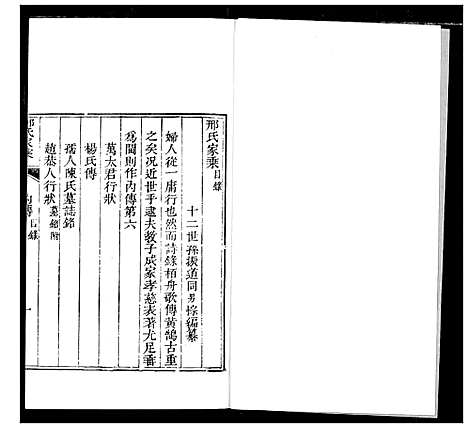 邢氏家乘目錄
十二世孫振道同易悰編纂
婦人從一庸行也然而詩錄栢舟歌傳黃鵠古重
之矣况近世乎逮夫教子成家孝慈表著尤足垂
爲閫則作內傳第六
萬太君行狀
楊氏傳
孺人陳氏墓誌銘
趙恭人行狀墓銘附
邢氏家乘 內傳目錄 一